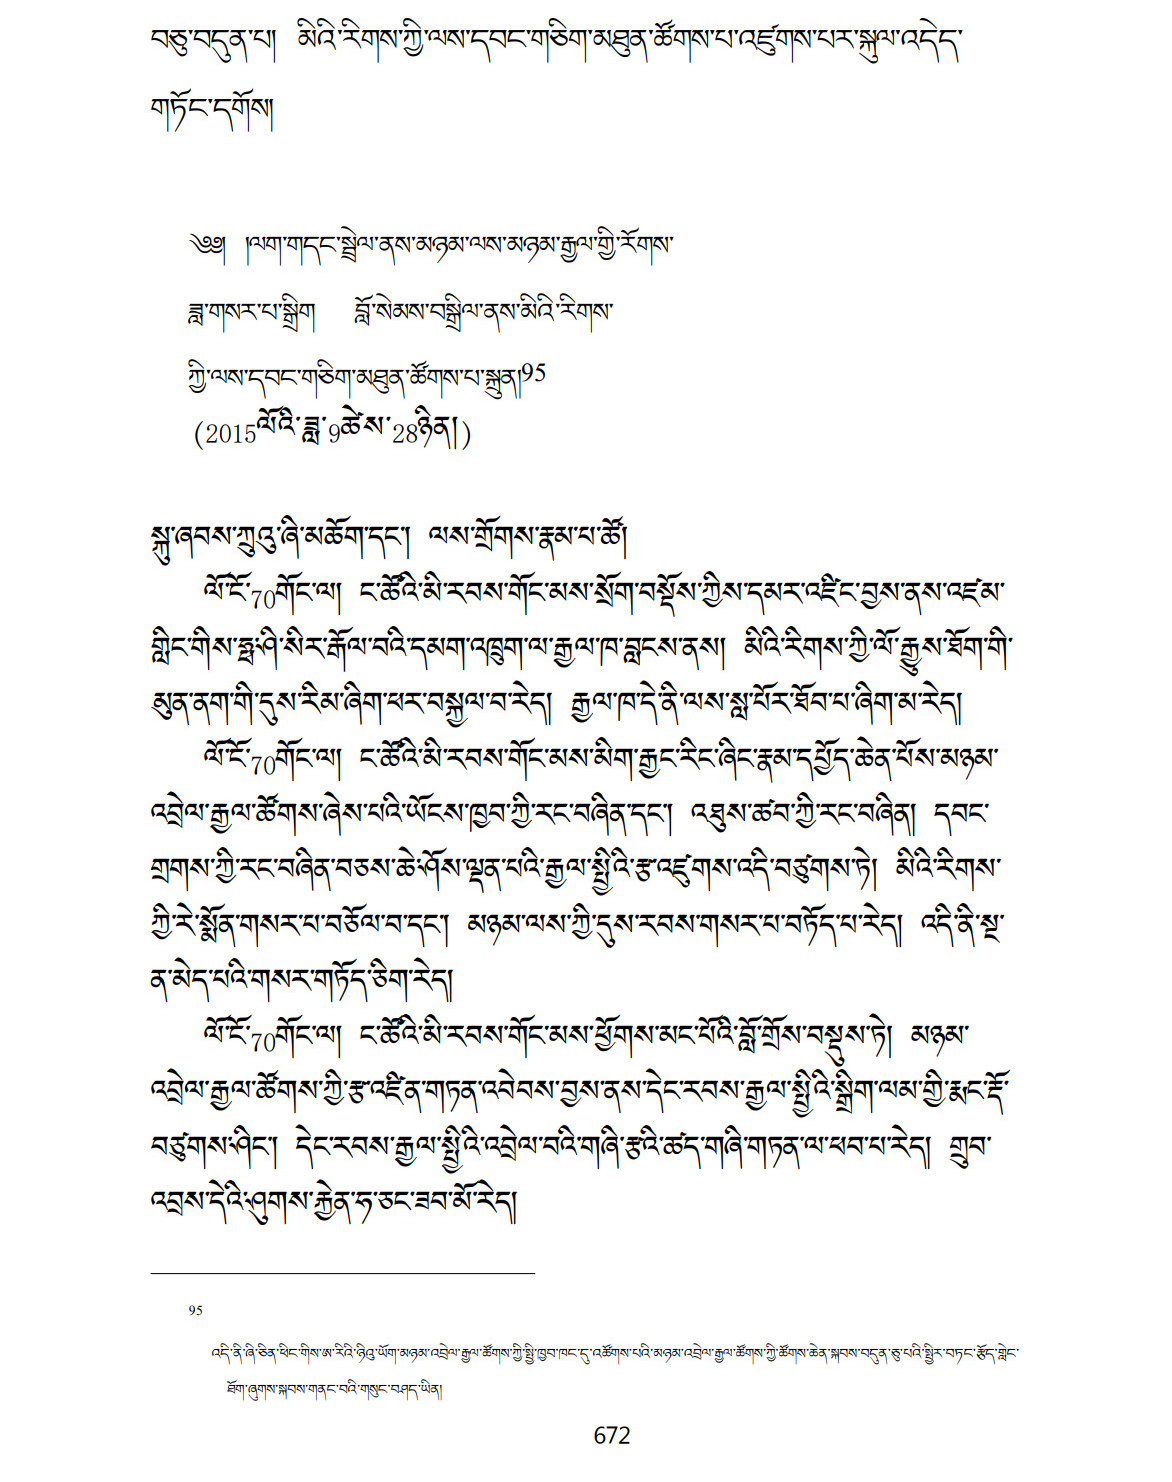 བཅུ་བདུན་པ། མིའི་རིགས་ཀྱི་ལས་དབང་གཅིག་མཐུན་ཚོགས་པ་འཛུགས་པར་སྐུལ་འདེད་
གཏོང་དགོས།
༄༅། །ལག་གདང་སྦྲེལ་ནས་མཉམ་ལས་མཉམ་རྒྱལ་གྱི་རོགས་
ཟླ་གསར་པ་སྒྲིག བློ་སེམས་བསྒྲིལ་ནས་མིའི་རིགས་
ཀྱི་ལས་དབང་གཅིག་མཐུན་ཚོགས་པ་སྐྲུན།95
(2015ལོའི་ཟླ་9ཚེས་28ཉིན།)
སྐུ་ཞབས་ཀྲུའུ་ཞི་མཆོག་དང་། ལས་གྲོགས་རྣམ་པ་ཚོ།
ལོ་ངོ་70གོང་ལ། ང་ཚོའི་མི་རབས་གོང་མས་སྲོག་བསྡོས་ཀྱིས་དམར་འཛིང་བྱས་ནས་འཛམ་
གླིང་གིས་ཧྥ་ཤི་སིར་རྒོལ་བའི་དམག་འཁྲུག་ལ་རྒྱལ་ཁ་བླངས་ནས། མིའི་རིགས་ཀྱི་ལོ་རྒྱུས་ཐོག་གི་
མུན་ནག་གི་དུས་རིམ་ཞིག་ཕར་བསྐྱལ་བ་རེད། རྒྱལ་ཁ་དེ་ནི་ལས་སླ་པོར་ཐོབ་པ་ཞིག་མ་རེད།
ལོ་ངོ་70གོང་ལ། ང་ཚོའི་མི་རབས་གོང་མས་མིག་རྒྱང་རིང་ཞིང་རྣམ་དཔྱོད་ཆེན་པོས་མཉམ་
འབྲེལ་རྒྱལ་ཚོགས་ཞེས་པའི་ཡོངས་ཁྱབ་ཀྱི་རང་བཞིན་དང་། འཐུས་ཚབ་ཀྱི་རང་བཞིན། དབང་
གྲགས་ཀྱི་རང་བཞིན་བཅས་ཆེ་ཤོས་ལྡན་པའི་རྒྱལ་སྤྱིའི་རྩ་འཛུགས་འདི་བཙུགས་ཏེ། མིའི་རིགས་
ཀྱི་རེ་སྨོན་གསར་པ་བཅོལ་བ་དང་། མཉམ་ལས་ཀྱི་དུས་རབས་གསར་པ་བཏོད་པ་རེད། འདི་ནི་སྔ་
ན་མེད་པའི་གསར་གཏོད་ཅིག་རེད།
ལོ་ངོ་70གོང་ལ། ང་ཚོའི་མི་རབས་གོང་མས་ཕྱོགས་མང་པོའི་བློ་གྲོས་བསྡུས་ཏེ། མཉམ་
འབྲེལ་རྒྱལ་ཚོགས་ཀྱི་རྩ་འཛིན་གཏན་འབེབས་བྱས་ནས་དེང་རབས་རྒྱལ་སྤྱིའི་སྒྲིག་ལམ་གྱི་རྨང་རྡོ་
བཙུགས་ཤིང་། དེང་རབས་རྒྱལ་སྤྱིའི་འབྲེལ་བའི་གཞི་རྩའི་ཚད་གཞི་གཏན་ལ་ཕབ་པ་རེད། གྲུབ་
འབྲས་དེའི་ཤུགས་རྐྱེན་ཧ་ཅང་ཟབ་མོ་རེད།
95
འདི་ནི་ཞི་ཅིན་ཕིང་གིས་ཨ་རིའི་ཉིའུ་ཡོག་མཉམ་འབྲེལ་རྒྱལ་ཚོགས་ཀྱི་སྤྱི་ཁྱབ་ཁང་དུ་འཚོགས་པའི་མཉམ་འབྲེལ་རྒྱལ་ཚོགས་ཀྱི་ཚོགས་ཆེན་སྐབས་བདུན་ཅུ་པའི་སྤྱིར་བཏང་རྩོད་གླེང་
ཐོག་ཞུགས་སྐབས་གནང་བའི་གསུང་བཤད་ཡིན།
672